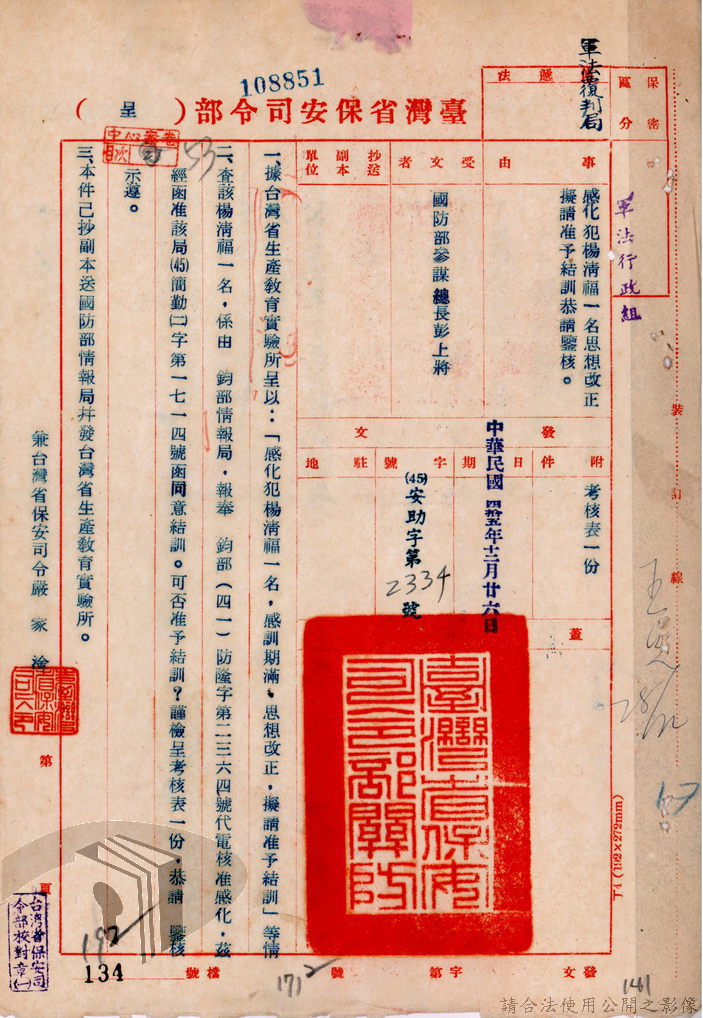 軍法覆判局
108851
臺灣省保安司令部(呈)
保密
區分
遞法
軍法行政組
事由
感化犯楊淸福一名思想改正
擬請准予結訓恭請鑒核。
受文者
國防部參謀總長彭上將
抄送副本單位
附件
考核表一份
發文
日期
中華民國四拾五年十二月廿六日
字號
(45)安助字第2334號
駐地
蓋
臺灣省保安司令部關防
一、據台灣省生產教育實驗所呈以：「感化犯楊淸福一名，感訓期滿、思想改正，擬請准予結訓」等情
二、查該楊淸福一名，係由　鈞部情報局，報奉　鈞部(四一)防隆字第二三六四號代電核准感化，茲
經函准該局(45)簡勤(二)字第一七一四號函同意結訓。可否准予結訓？謹檢呈考核表一份，恭請　鑒核
示遵。
三、本件已抄副本送國防部情報局幷發台灣省生產教育實驗所。
兼台灣省保安司令嚴家淦
53
裝訂線
T4(192×272mm)
第
頁
台灣省保安司
令部校對章(一)
192
134
檔號
1712
發文 字第 號
1411
請合法使用公開之影像